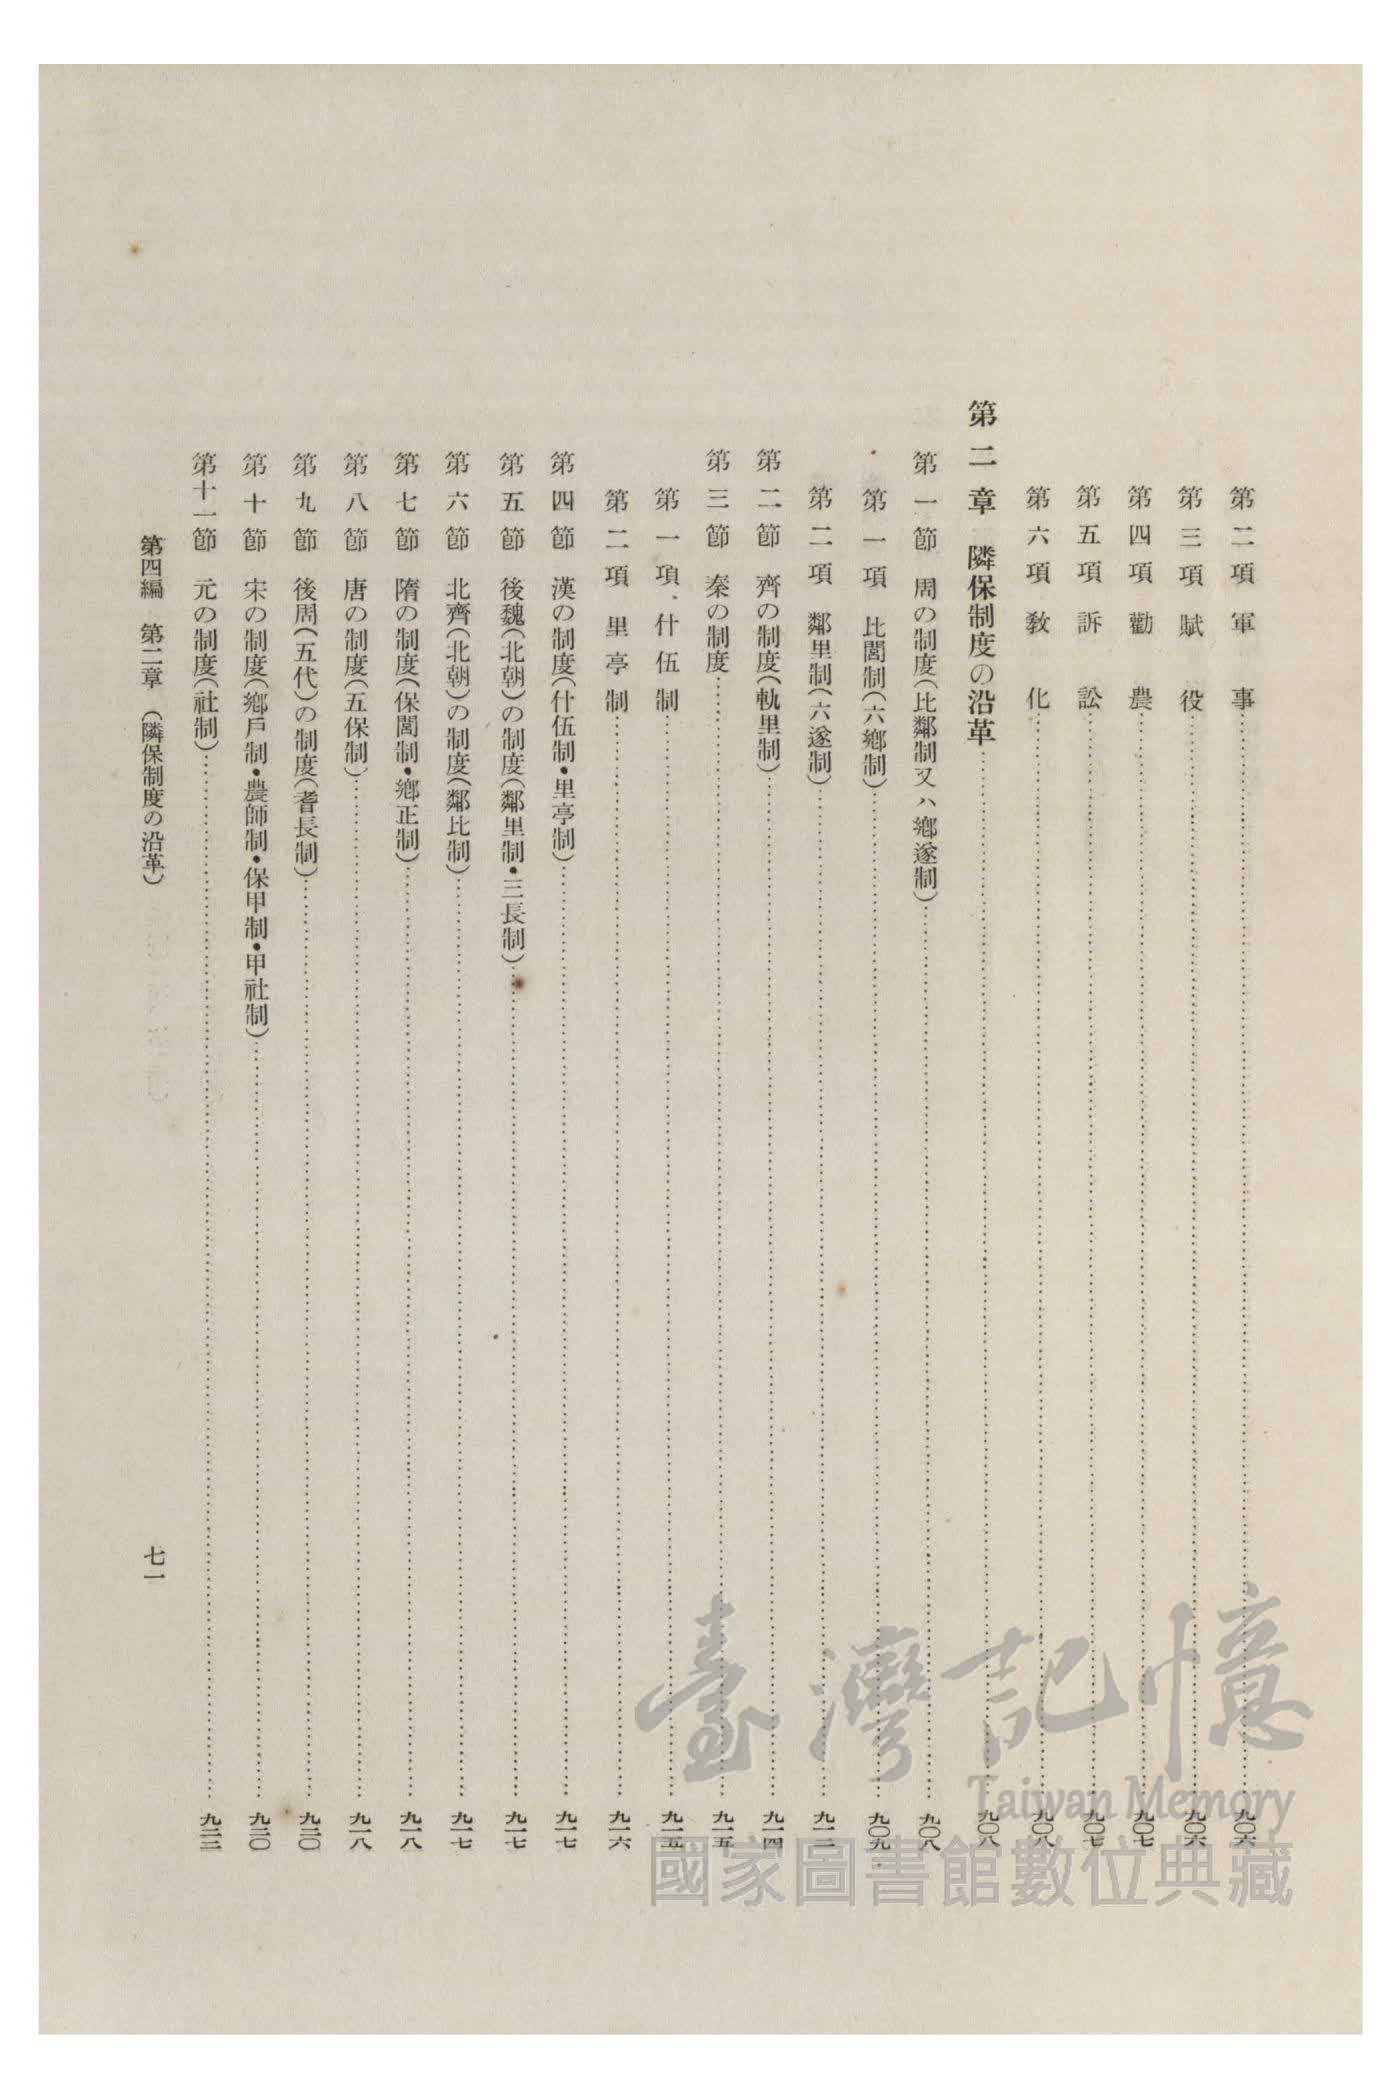 第二項 軍事……九〇六
第三項 賦役……九〇六
第四項 勸農……九〇七
第五項 訴訟……九〇七
第六項 敎化……九〇八
第二章 隣保制度の沿革……九〇八
第一節 周の制度(比鄰制又ハ鄕遂制)……九〇八
第一項 比閭制(六鄕制)……九〇九
第二項 鄰里制(六遂制)……九一二
第二節 齊の制度(軌里制)……九一四
第三節 秦の制度……九一五
第一項 什伍制……九一五
第二項 里亭制……九一六
第四節 漢の制度(什伍制•里亭制)……九一七
第五節 後魏(北朝)の制度(鄰里制•三長制)……九一七
第六節 北齊(北朝)の制度(鄰比制)……九一七
第七節 隋の制度(保閭制•鄕正制)……九一八
第八節 唐の制度(五保制)……九一八
第九節 後周(五代)の制度(耆長制)……九二〇
第十節 宋の制度(鄕戶制•農師制•保甲制•甲社制)……九二〇
第十一節 元の制度(社制)……九二三
第四編 第二章 (隣保制度の沿革)
七一
臺灣記憶
Taiwan Memory
國家圖書館數位典藏